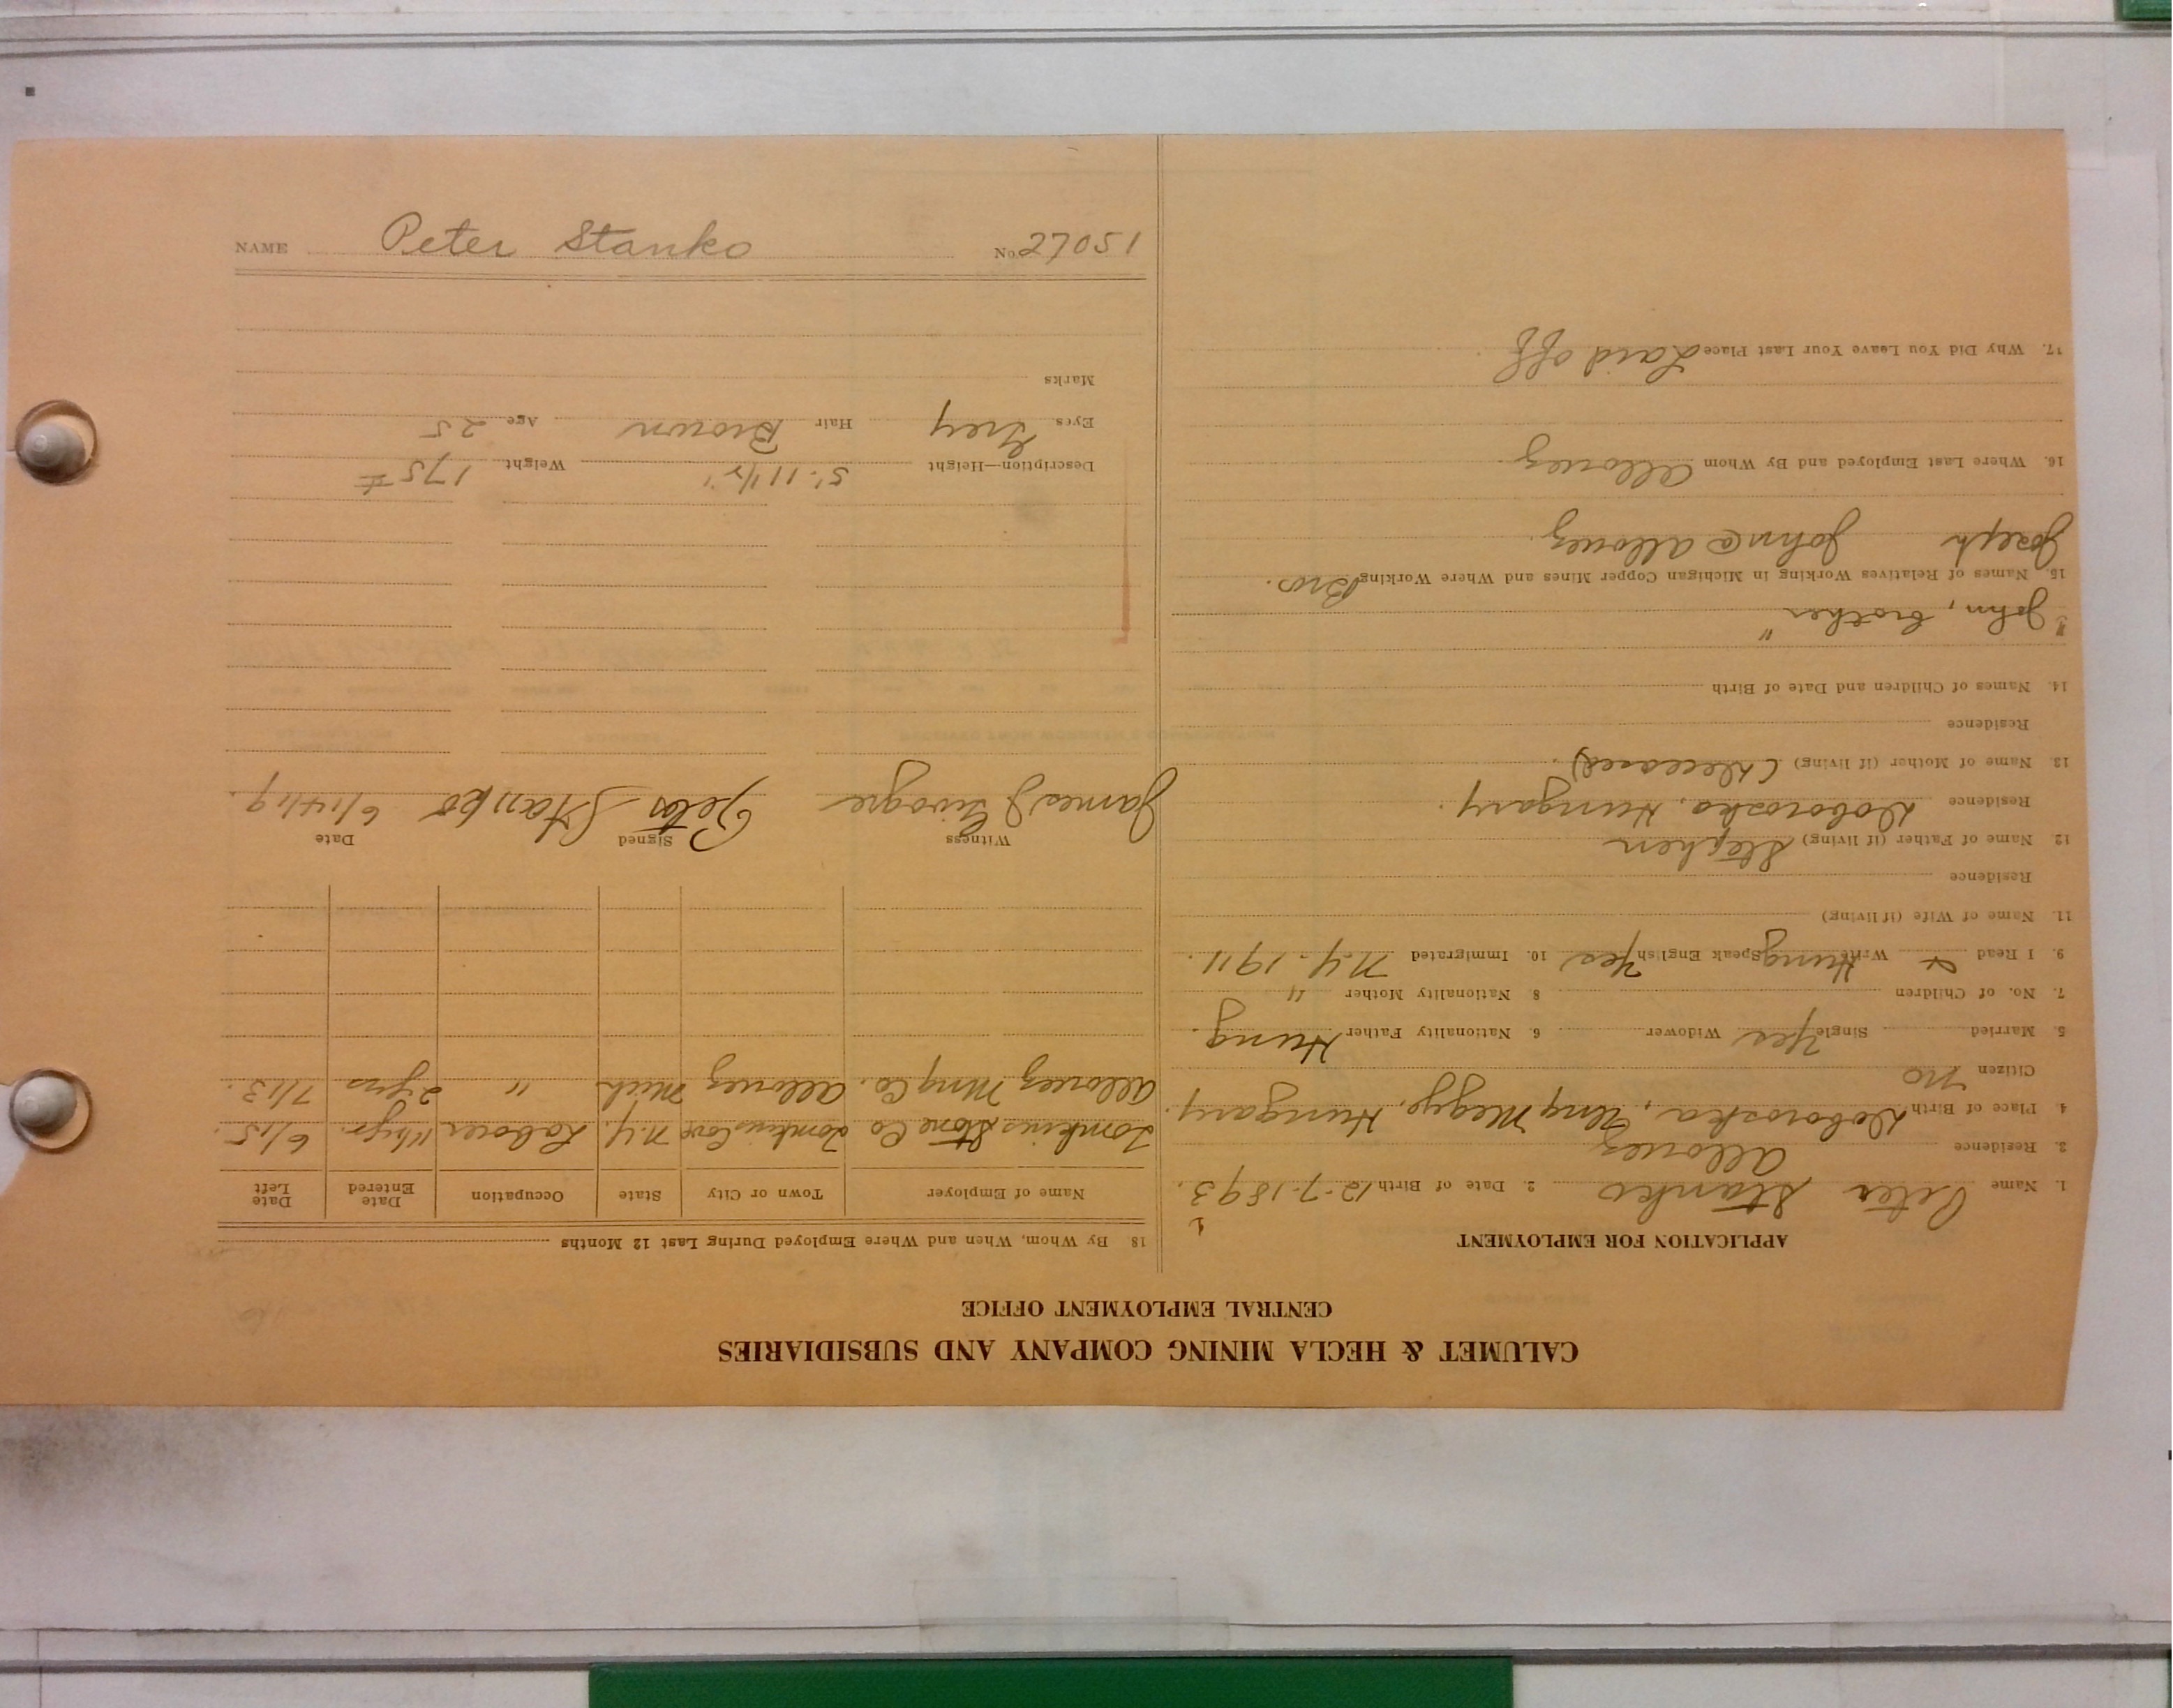 CALUMET & HECLA MINING COMPANY AND SUBSIDIARIES
CENTRAL EMPLOYMENT OFFICE
APPLICATION FOR EMPLOYMENT
1. Name Peter Stanko 2. Date of Birth 12-7-1893.
3. Residence Allouez
4. Place of Birth Doboroska, Ung Megye, Hungary.
Citizen No
5. Married Single Yes Widower 6. Nationality Father Hung.
7. No. of Children 8. Nationality Mother "
9. I Read & Write Hung Speak English Yes 10. Immigrated N.Y. 1911.
11. Name of Wife (if living)
Residence
12. Name of Father (if living) Stephen
Residence Doboroska, Hungary.
13. Name of Mother (if living) (Deceased).
Residence
14. Names of Children and Date of Birth
John, brother "
15. Names of Relatives Working in Michigan Copper Mines and Where Working Bros.
Joseph John @ Allouez
16. Where Last Employed and By Whom Allouez
17. Why Did You Leave Your Last Place Laid off
18 By Whom, When and Where Employed During Last 12 Months
Name of Employer Town or City State Occupation Date Entered Date Left
Tomkins Stone Co Tomkins Cove N.Y. Laborer 1½ yr. 6/15.
Allouez Mng Co. Allouez Mich " 2 yrs 7/13.
Witness Signed Date
James J Peter Stanko 6/14/19.
Description—Height 5' 11½" Weight 175 #
Eyes Grey Hair Brown Age 25
Marks
NAME Peter Stanko No. 27051